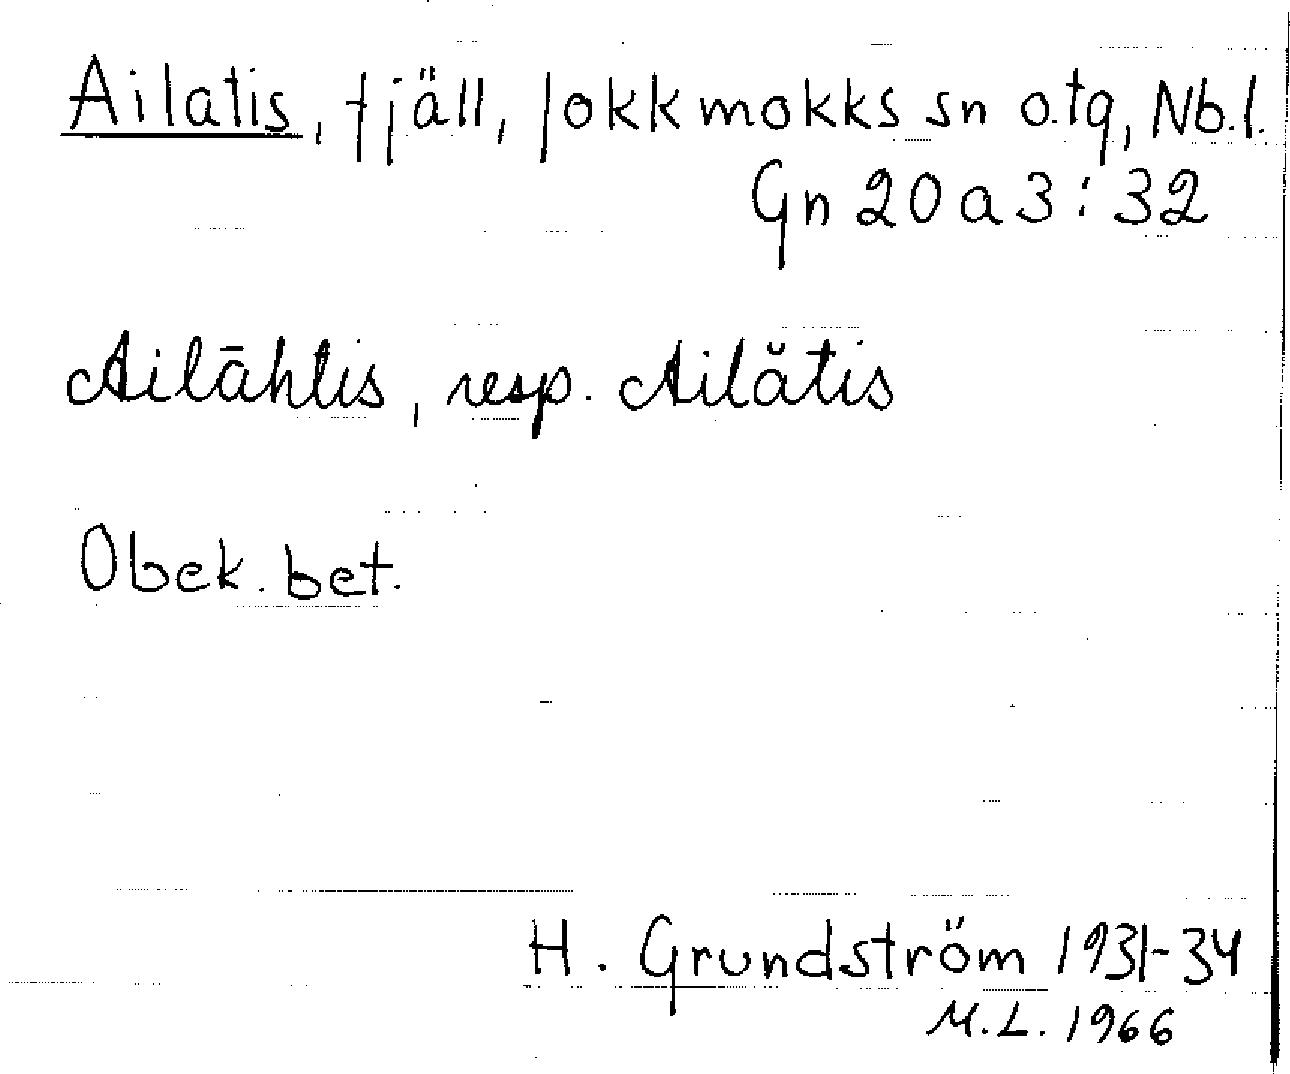 Ailatis, fjäll, Jokkmokks sn o.tg, Nb.l.
Gn 20 a 3 : 32
Ailāhtis, resp. Ailătis
Obek. bet.
H. Grundström 1931-34
M.L. 1966